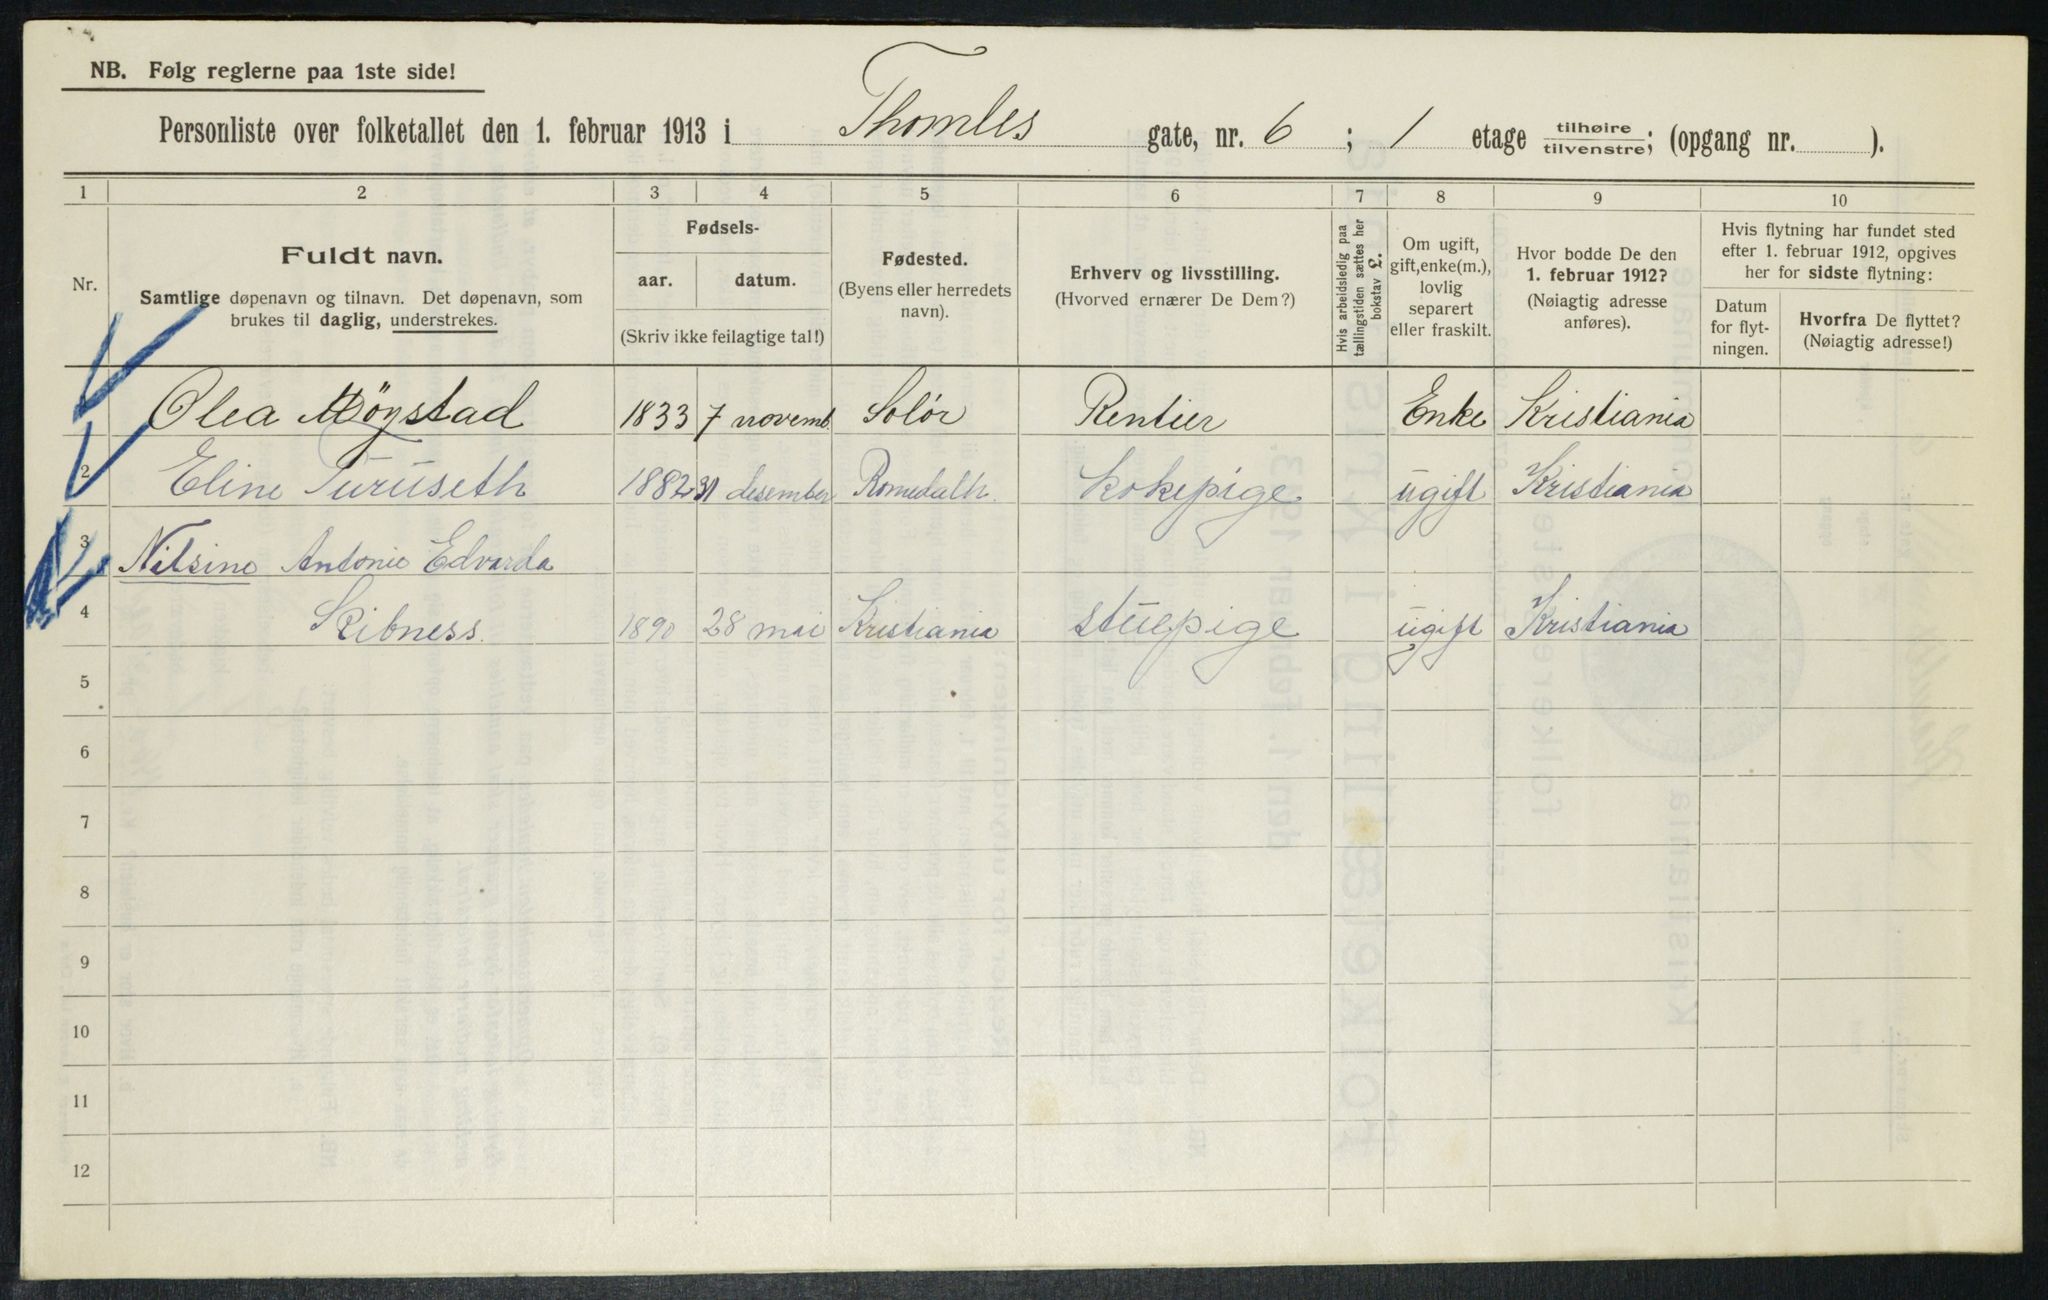 NB. Følg reglerne paa 1ste side!
Personliste over folketallet den 1. februar 1913 i Thomles gate, nr. 6 ; 1 etage tilhøire tilvenstre; (opgang nr. ).
1 2 3 4 5 6 7 8 9 10
Nr.
Fuldt navn.
Samtlige døpenavn og tilnavn. Det døpenavn, som
brukes til daglig, understrekes.
Fødsels-
aar. datum.
(Skriv ikke feilagtige tal!)
Fødested.
(Byens eller herredets
navn).
Erhverv og livsstilling.
(Hvorved ernærer De Dem?)
Hvis arbeidsledig paa
tællingstiden sættes her
bokstav L.
Om ugift,
gift, enke(m.),
lovlig
separert
eller fraskilt.
Hvor bodde De den
1. februar 1912?
(Nøiagtig adresse
anføres).
Hvis flytning har fundet sted
efter 1. februar 1912, opgives
her for sidste flytning:
Datum
for flyt-
ningen.
Hvorfra De flyttet?
(Nøiagtig adresse!)
Olea Møystad 1833 7 novemb. Solör Rentier Enke Kristiania
2 Eline Turuseth 1882 31 desember Romedalh. kokepige ugift Kristiania
3 Nilsine Antonie Edvarda
4 Skibness. 1890 28 mai Kristiania stuepige ugift Kristiania
5
6
7
8
9
10
11
12